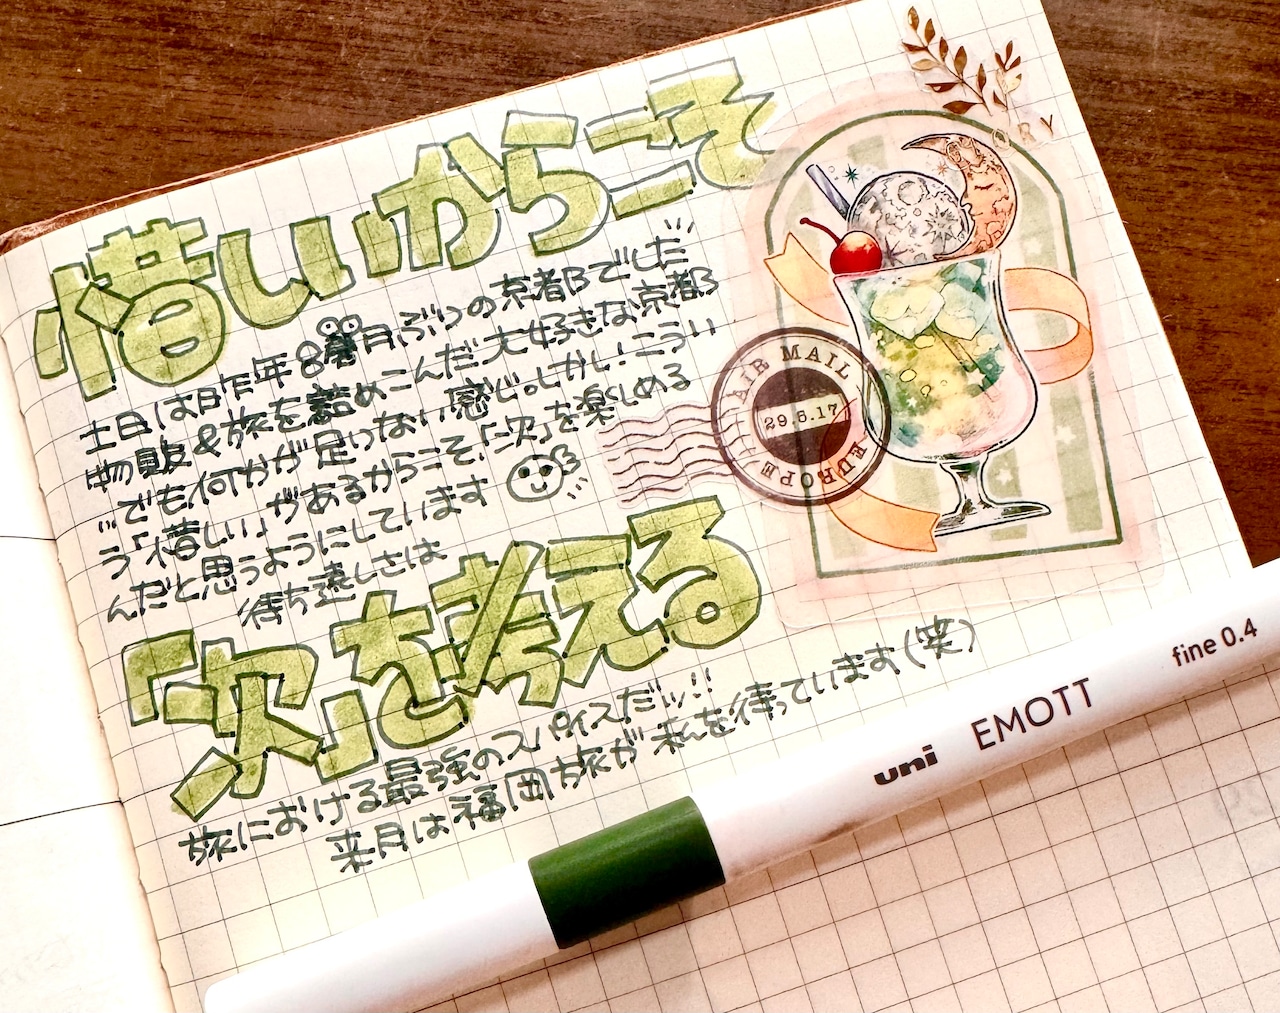 惜しいからこそ
土日は昨年8月ぶりの京都でした
物販&旅を詰めこんだ大好きな京都
…でも何かが足りない感じ。しかし、こうい
う「惜しい」があるからこそ、「次」を楽しめる
んだと思うようにしています
待ち遠しさは
「次」を考える
旅における最強のスパイスだッ!!
来月は福岡旅が私を待っています(笑)
AIR MAIL
29.5.17
EUROPE
uni EMOTT fine 0.4